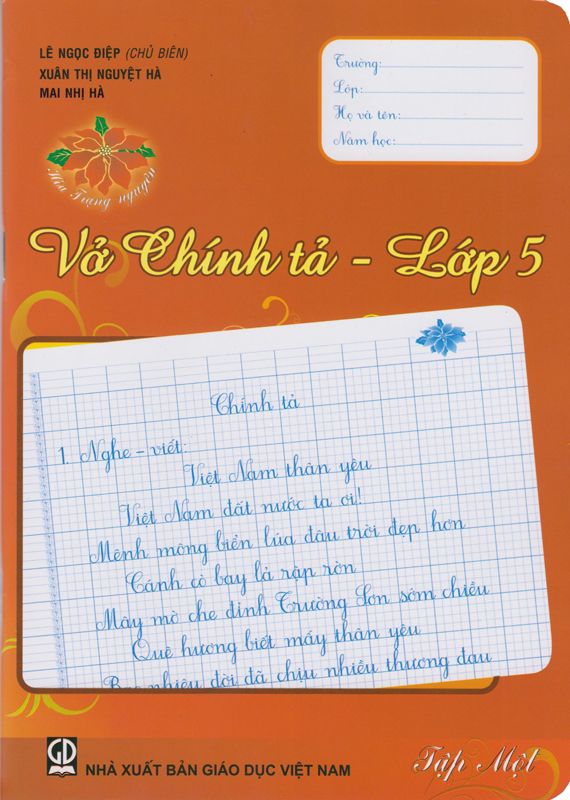 LÊ NGỌC ĐIỆP (CHỦ BIÊN)
XUÂN THỊ NGUYỆT HÀ
MAI NHỊ HÀ
Hoa Trạng nguyên
Trường:
Lớp:
Họ và tên:
Năm học:
Vở Chính tả - Lớp 5
Chính tả
1. Nghe - viết:
Việt Nam thân yêu
Việt Nam đất nước ta ơi!
Mênh mông biển lúa đâu trời đẹp hơn
Cánh cò bay lả rập rờn
Mây mờ che đỉnh Trường Sơn sớm chiều
Quê hương biết mấy thân yêu
Bao nhiêu đời đã chịu nhiều thương đau
GD
NHÀ XUẤT BẢN GIÁO DỤC VIỆT NAM
Tập Một